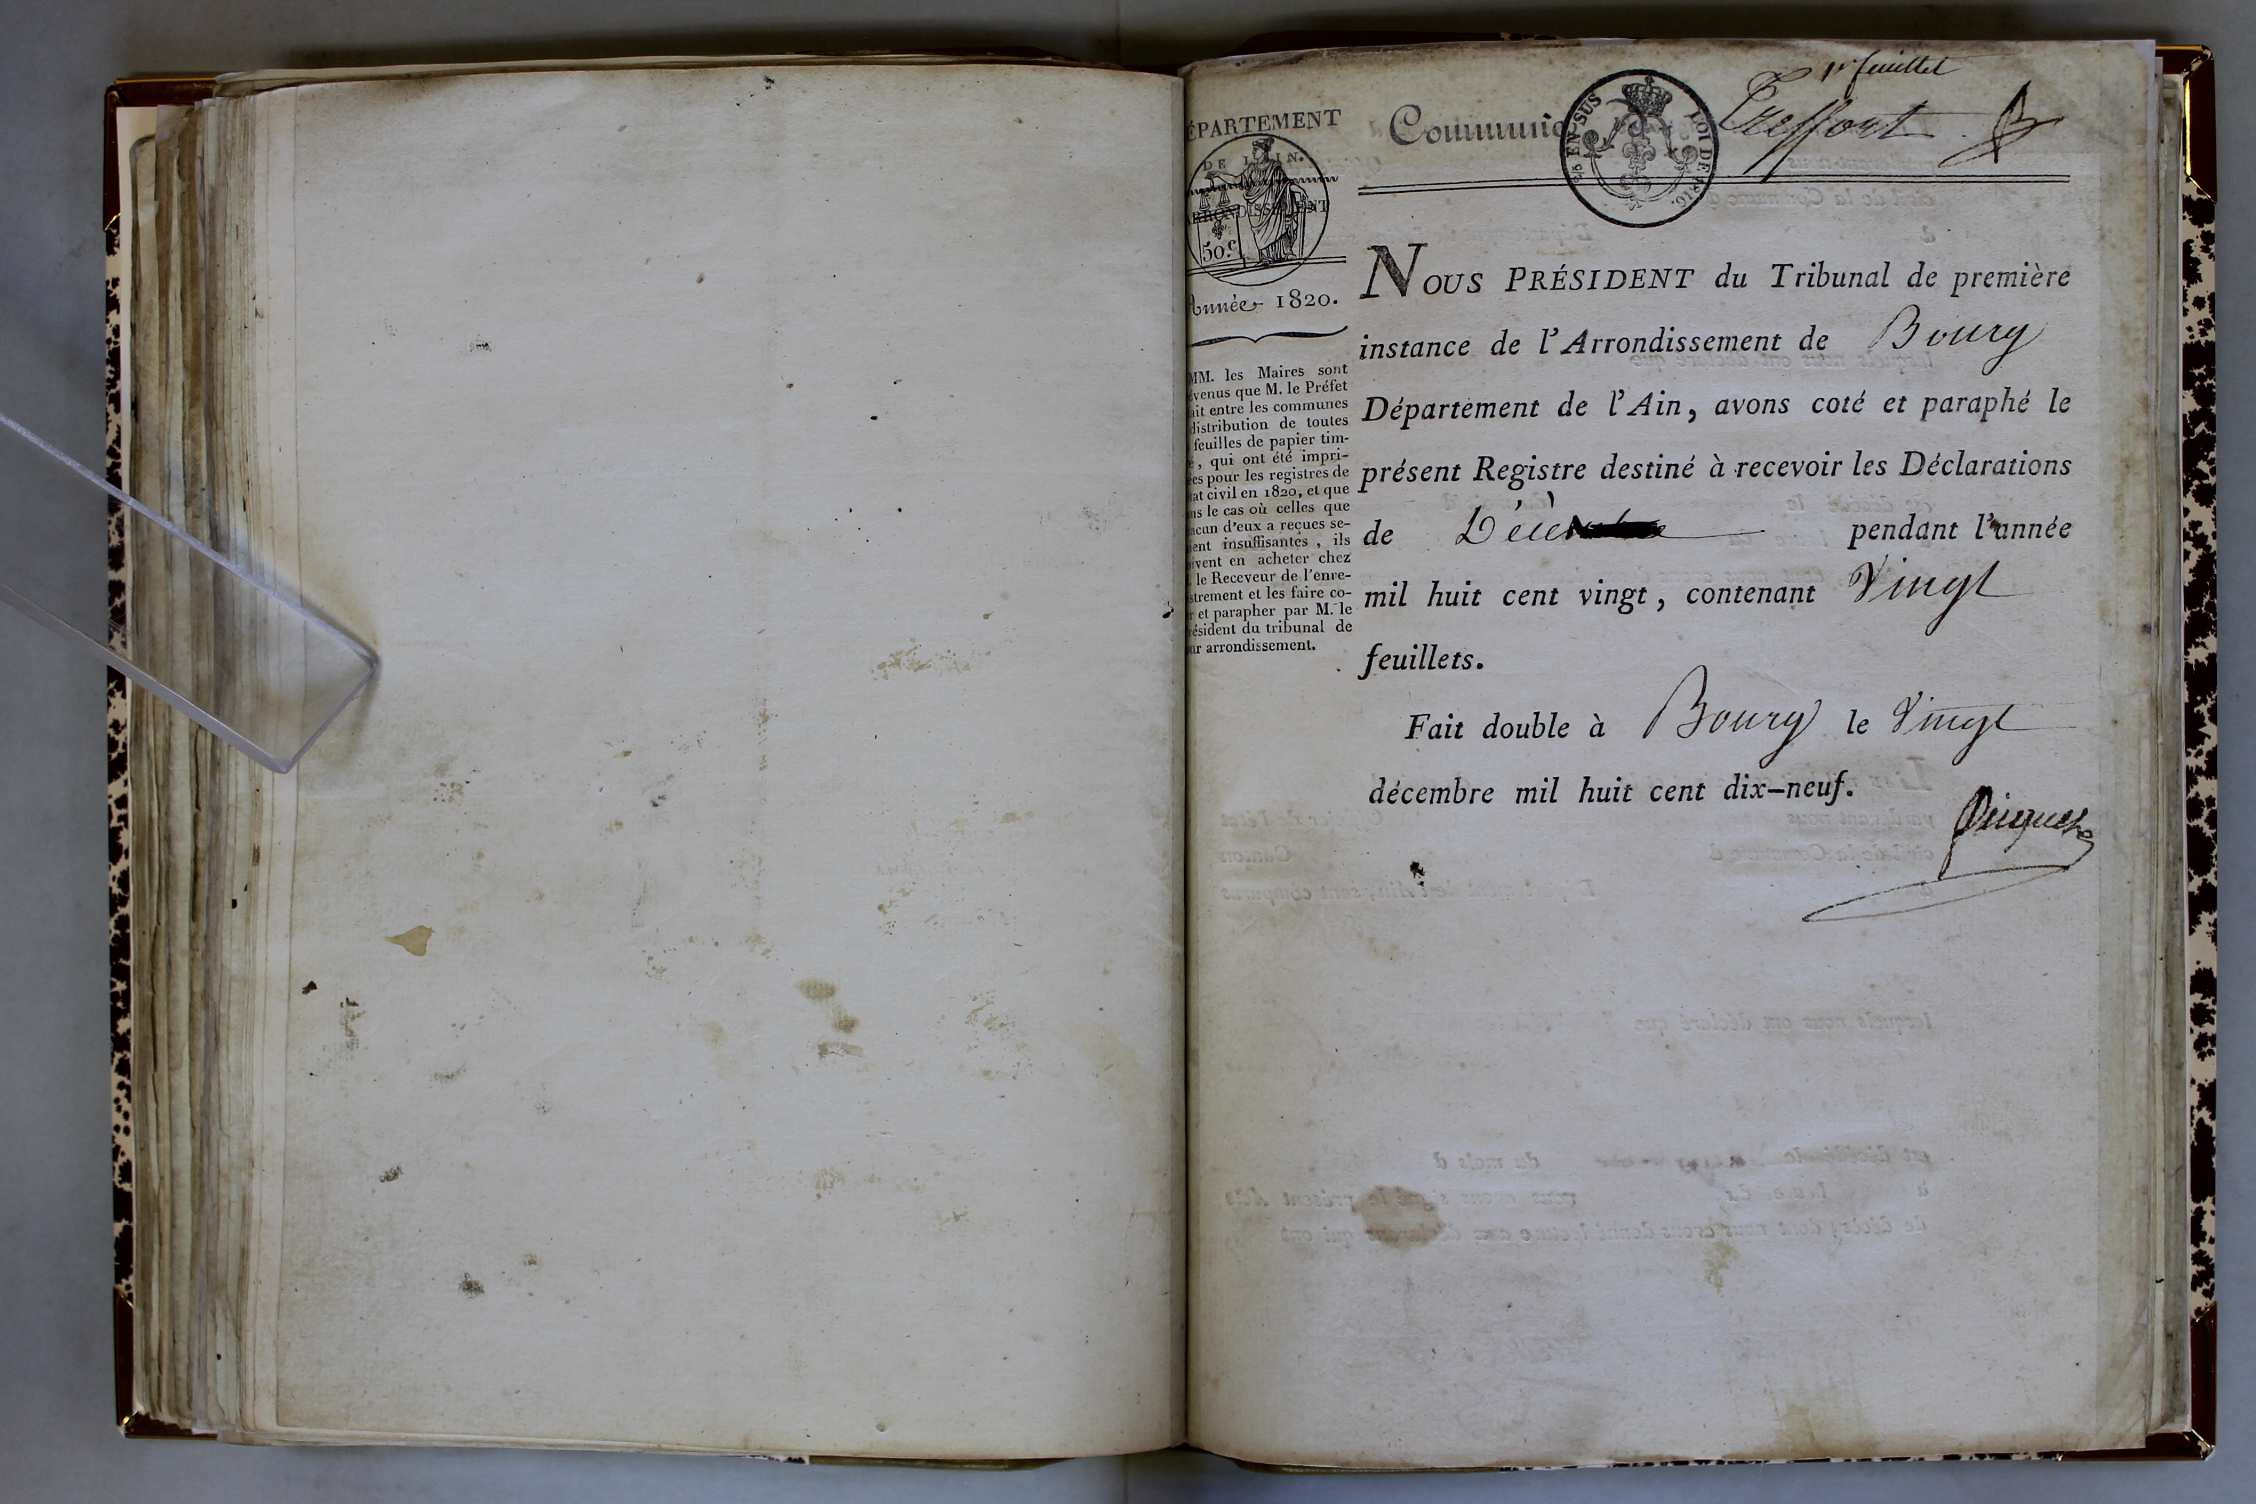 1er feuillet
Commune Treffort
EN SUS LOI DE 1816.
ÉPARTEMENT
DE L'AIN.
ARRONDISSEMENT
50.c
Année 1820.
MM. les Maires sont
évenus que M. le Préfet
ait entre les communes
distribution de toutes
feuilles de papier tim-
é, qui ont été impri-
ées pour les registres de
tat civil en 1820, et que
ns le cas où celles que
acun d'eux a reçues se-
ient insuffisantes, ils
ivent en acheter chez
le Receveur de l'enre-
strement et les faire co-
r et parapher par M. le
résident du tribunal de
ur arrondissement.
NOUS PRÉSIDENT du Tribunal de première
instance de l'Arrondissement de Bourg
Département de l'Ain, avons coté et paraphé le
présent Registre destiné à recevoir les Déclarations
de pendant l'année
mil huit cent vingt, contenant Vingt
feuillets.
Fait double à Bourg le Vingt
décembre mil huit cent dix-neuf.